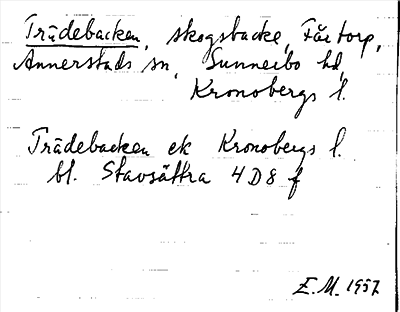 Trädebacken, skogsbacke, Fårtorp,
Annerstads sn, Sunnerbo hd,
Kronobergs l.
Trädebacken ek Kronobergs l.
bl. Stavsättra 4 D 8 f
E. M. 1957